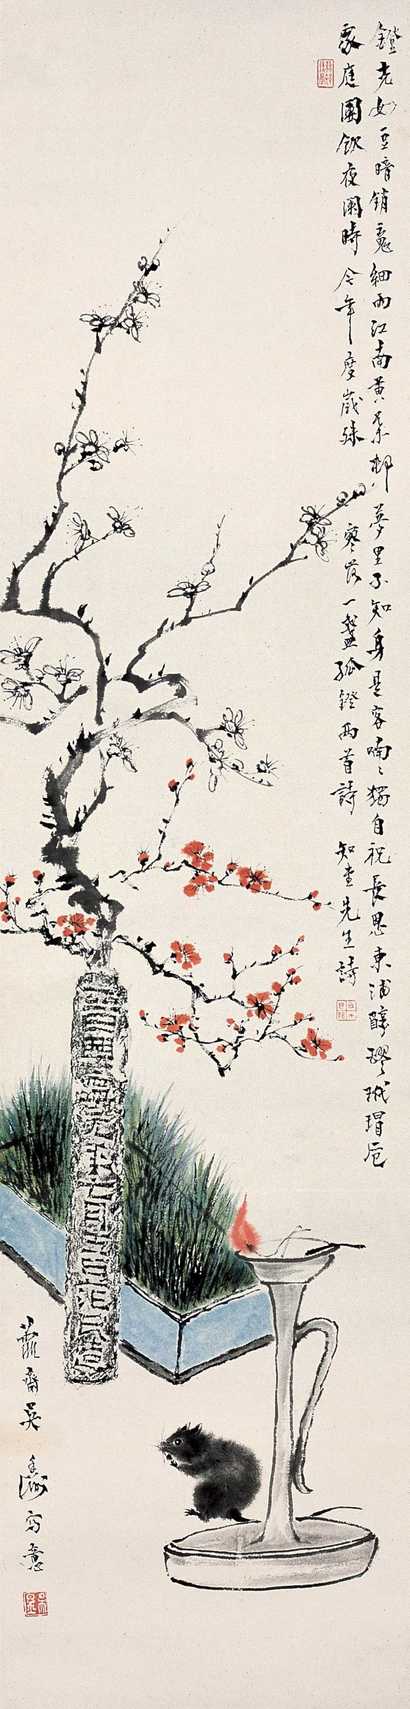 鐙光如豆暗销魂細雨江南黃葉邨夢里不知身是客喃々獨自祝長恩東浦醇醪玳瑁卮
家庭團飲夜闌時今年度歲殊寥落一盞孤鐙兩首詩 知堂先生詩
齋吳
寫意